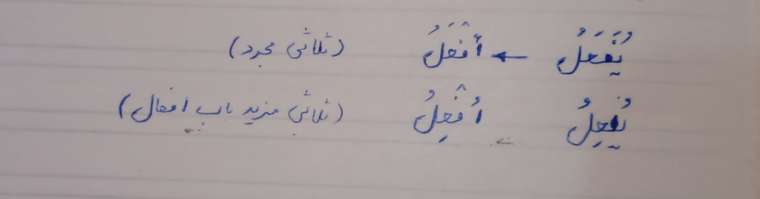 يُفْعَلُ ← أَفْعَلُ (ثلاثی مجرد)
يُفْعِلُ اُفْعِلُ (ثلاثی مزید باب افعال)